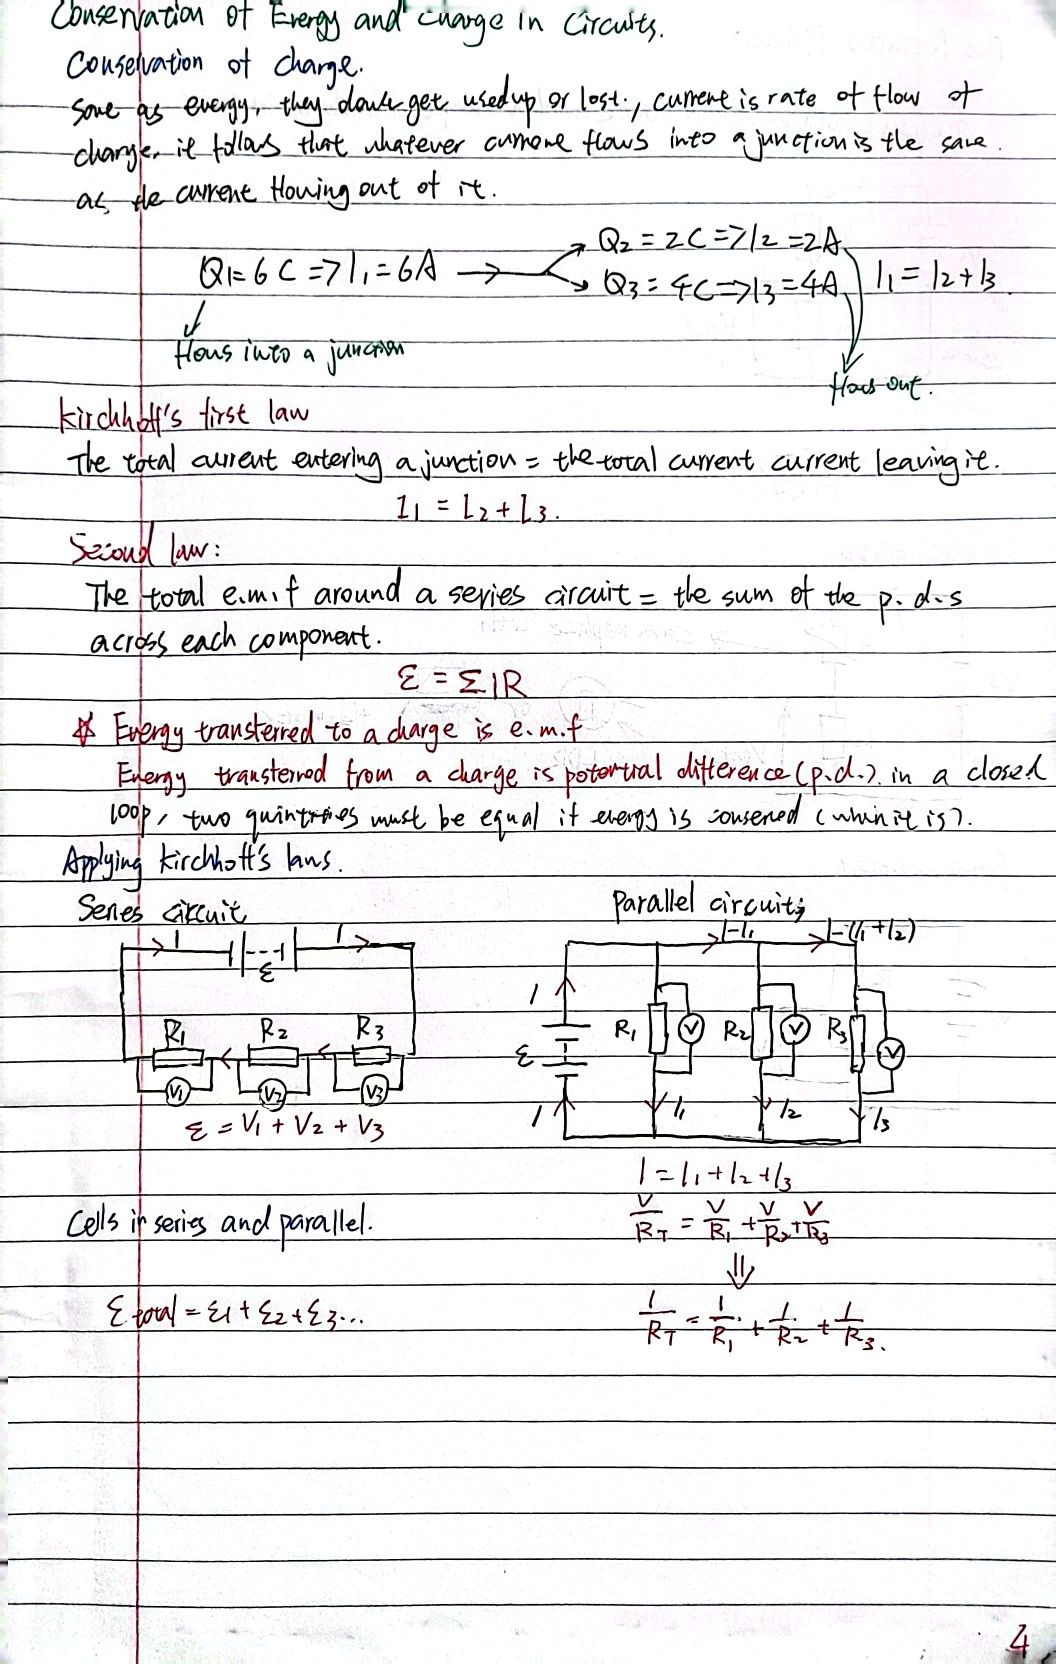 Conservation of Energy and Charge in Circuits.
Conservation of charge.
Same as energy, they don't get used up or lost., current is rate of flow of
charge, it follows that whatever current flows into a junction is the same.
as the current flowing out of it.
Q1 = 6C => I1 = 6A → Q2 = 2C => I2 = 2A
Q3 = 4C => I3 = 4A
I1 = I2 + I3
flows into a junction
flows out.
Kirchhoff's first law
The total current entering a junction = the total current current leaving it.
I1 = I2 + I3.
Second law:
The total e.m.f around a series circuit = the sum of the p.d.s
across each component.
ε = ΣIR
☆ Energy transferred to a charge is e.m.f
Energy transferred from a charge is potential difference (p.d.). in a closed
loop, two quintities must be equal if energy is conserved (which it is).
Applying Kirchhoff's laws.
Series circuit
I I
ε
R1 R2 R3
V1 V2 V3
ε = V1 + V2 + V3
Parallel circuit;
I-I1 I-(I1+I2)
I
R1 V R2 V R3 V
ε
I I1 I2 I3
I = I1 + I2 + I3
V/RT = V/R1 + V/R2 + V/R3
⇓
1/RT = 1/R1 + 1/R2 + 1/R3.
Cells in series and parallel.
ε total = ε1 + ε2 + ε3...
4